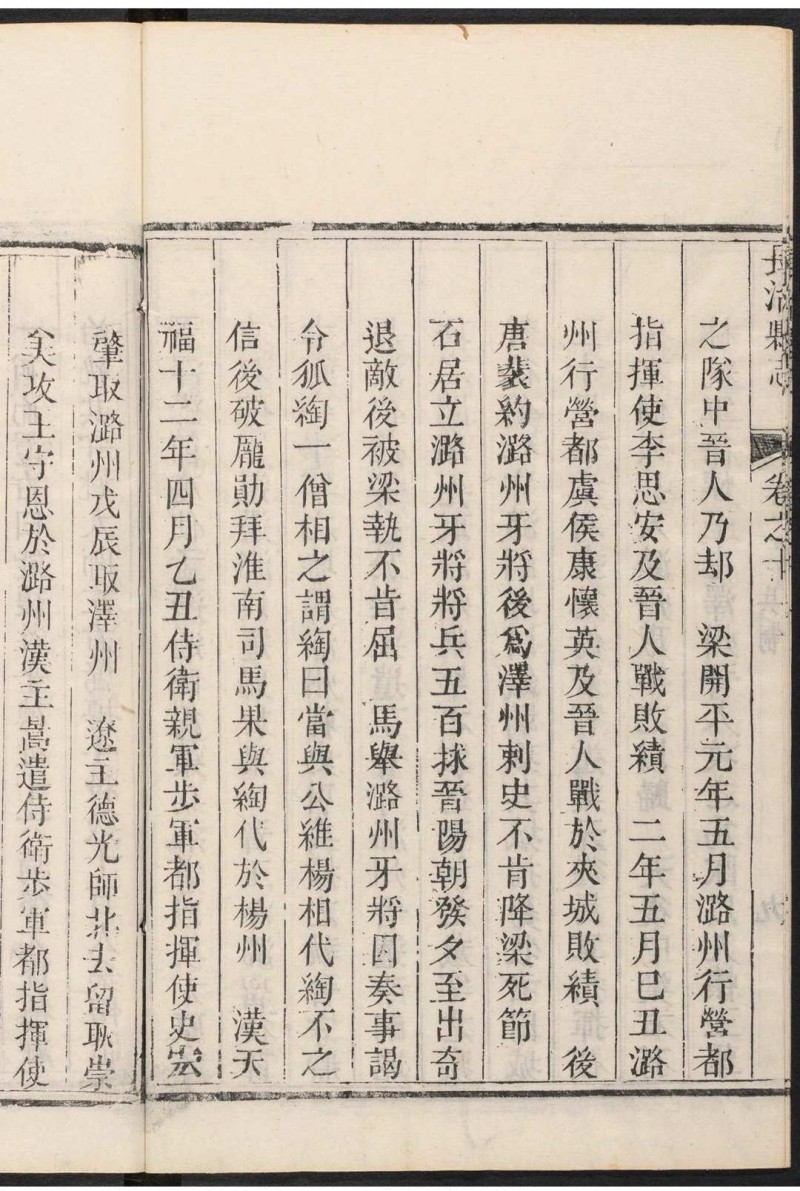 長治縣志 卷之十
之隊中晉人乃却 梁開平元年五月潞州行營都
指揮使李思安及晉人戰敗績 二年五月巳丑潞
州行營都虞侯康懷英及晉人戰於夾城敗績 後
唐裴約潞州牙將後爲澤州刺史不肯降梁死節
石居立潞州牙將將兵五百捄晉陽朝發夕至出奇
退敵後被梁執不肯屈 馬舉潞州牙將因奏事謁
令狐綯一僧相之謂綯曰當與公維楊相代綯不之
信後破龎勛拜淮南司馬果與綯代於楊州 漢天
福十二年四月乙丑侍衛親軍步軍都指揮使史宏
肇取潞州戊辰取澤州 遼主德光師北去留耿崇
美攻王守恩於潞州漢主暠遣侍衛步軍都指揮使